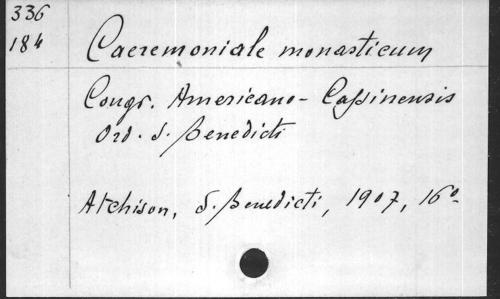 336
184
Caeremoniale monasticum
Congr. Americano-Cassinensis
Ord. S. Benedicti
Atchison, S. Benedicti, 1907, 16°